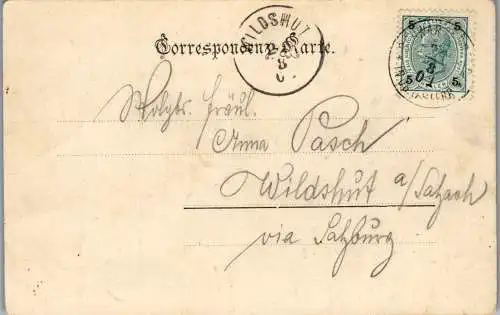 Correspondenz-Karte.
WILDSHUT
5 5
5 5
Wolgb. Fräul.
Anna Pasch
Wildshut a/Salzach
via Salzburg